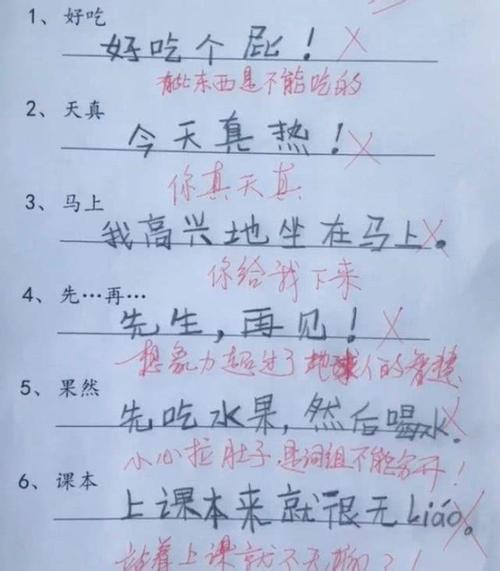 1、好吃
好吃个屁！
有些东西是不能吃的
2、天真
今天真热！
你真天真
3、马上
我高兴地坐在马上。
你给我下来
4、先…再…
先生，再见！
想象力超过了地球人的智慧
5、果然
先吃水果，然后喝水.
小心拉肚子，是词组不能分开！
6、课本
上课本来就很无liáo。
站着上课就不无聊了！